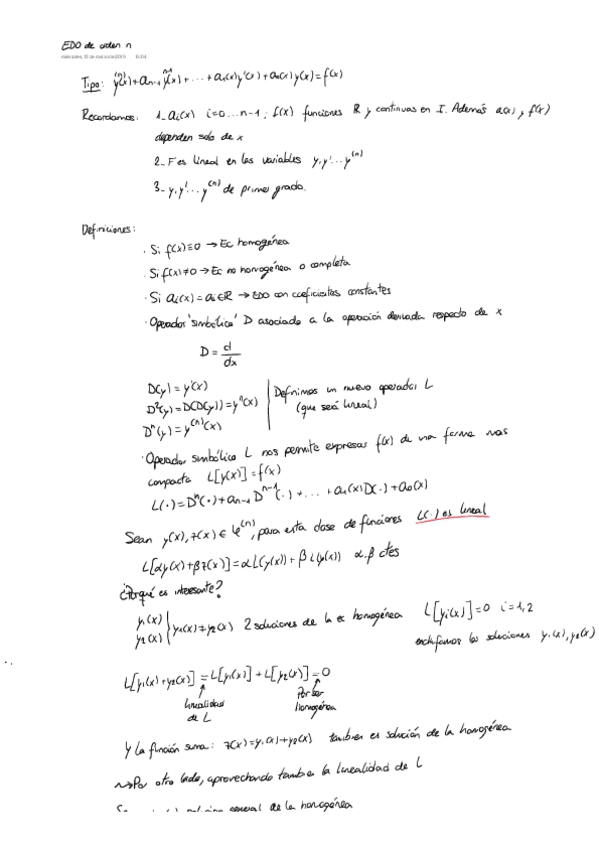 EDO de orden n
miércoles, 13 de marzo de 2019
Tipo: y⁽ⁿ⁾(x)+aₙ₋₁ y⁽ⁿ⁻¹⁾(x)+...+a₁(x)y'(x)+a₀(x)y(x)=f(x)
Recordamos: 1- aᵢ(x) i=0...n-1; f(x) funciones ℝ y continuas en I. Además a(x) y f(x)
dependen solo de x
2- F es lineal en las variables y, y'... y⁽ⁿ⁾
3- y, y'... y⁽ⁿ⁾ de primer grado.
Definiciones:
· Si f(x)≡0 → Ec homogénea
· Si f(x)≠0 → Ec no homogénea o completa
· Si aᵢ(x)=aᵢ∈ℝ → EDO con coeficientes constantes
· Operador 'simbólico' D asociado a la operación derivada respecto de x
D = d/dx
D(y) = y'(x)
D²(y)=D(D(y))=y''(x) | Definimos un nuevo operador L
(que será lineal)
Dⁿ(y)=y⁽ⁿ⁾(x)
· Operador simbólico L nos permite expresar f(x) de una forma mas
compacta L[y(x)]=f(x)
L(·)=Dⁿ(·)+aₙ₋₁Dⁿ⁻¹(·)+...+a₁(x)D(·)+a₀(x)
Sean y(x), z(x) ∈ 𝒞⁽ⁿ⁾, para esta clase de funciones L(·) es lineal
L[αy(x)+βz(x)]=αL(y(x))+βL(y(x)) α,β ctes
¿Porqué es interesante?
y₁(x)
y₂(x) | y₁(x)≠y₂(x) 2 soluciones de la ec homogénea L[yᵢ(x)]=0 i=1,2
soluciones y₁(x), y₂(x)
L[y₁(x)+y₂(x)] = L[y₁(x)]+L[y₂(x)] = 0
linealidad de L
Por ser homogénea
Y la función suma: z(x)=y₁(x)+y₂(x) tambien es solución de la homogénea
⇝ Por otro lado, aprovechando tambien la linealidad de L
general de la homogénea